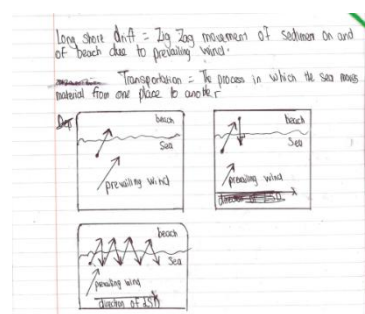 Long shore drift = Zig Zag movement of sedimen on and
of beach due to prevailing wind.
Transportation = The process in which the sea moves
material from one place to another
beach
Sea
prevailing wind
beach
Sea
prevailing wind
direction of LSD
beach
Sea
prevailing wind
direction of LSD